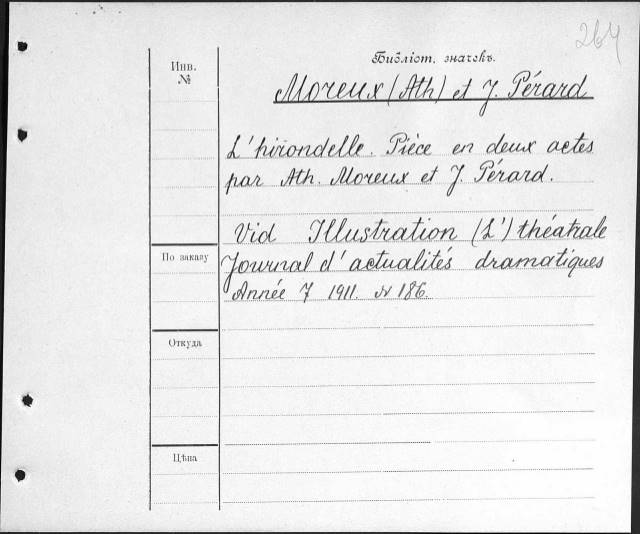 264
Библіот. значекъ.
Инв.
№
Moreux (Ath) et J. Pérard
L'hirondelle. Pièce en deux actes
par Ath. Moreux et J. Pérard.
Vid Illustration (L') théatrale
По заказу
Journal d'actualités dramatiques
Année 7 1911. N 186.
Откуда
Цѣна